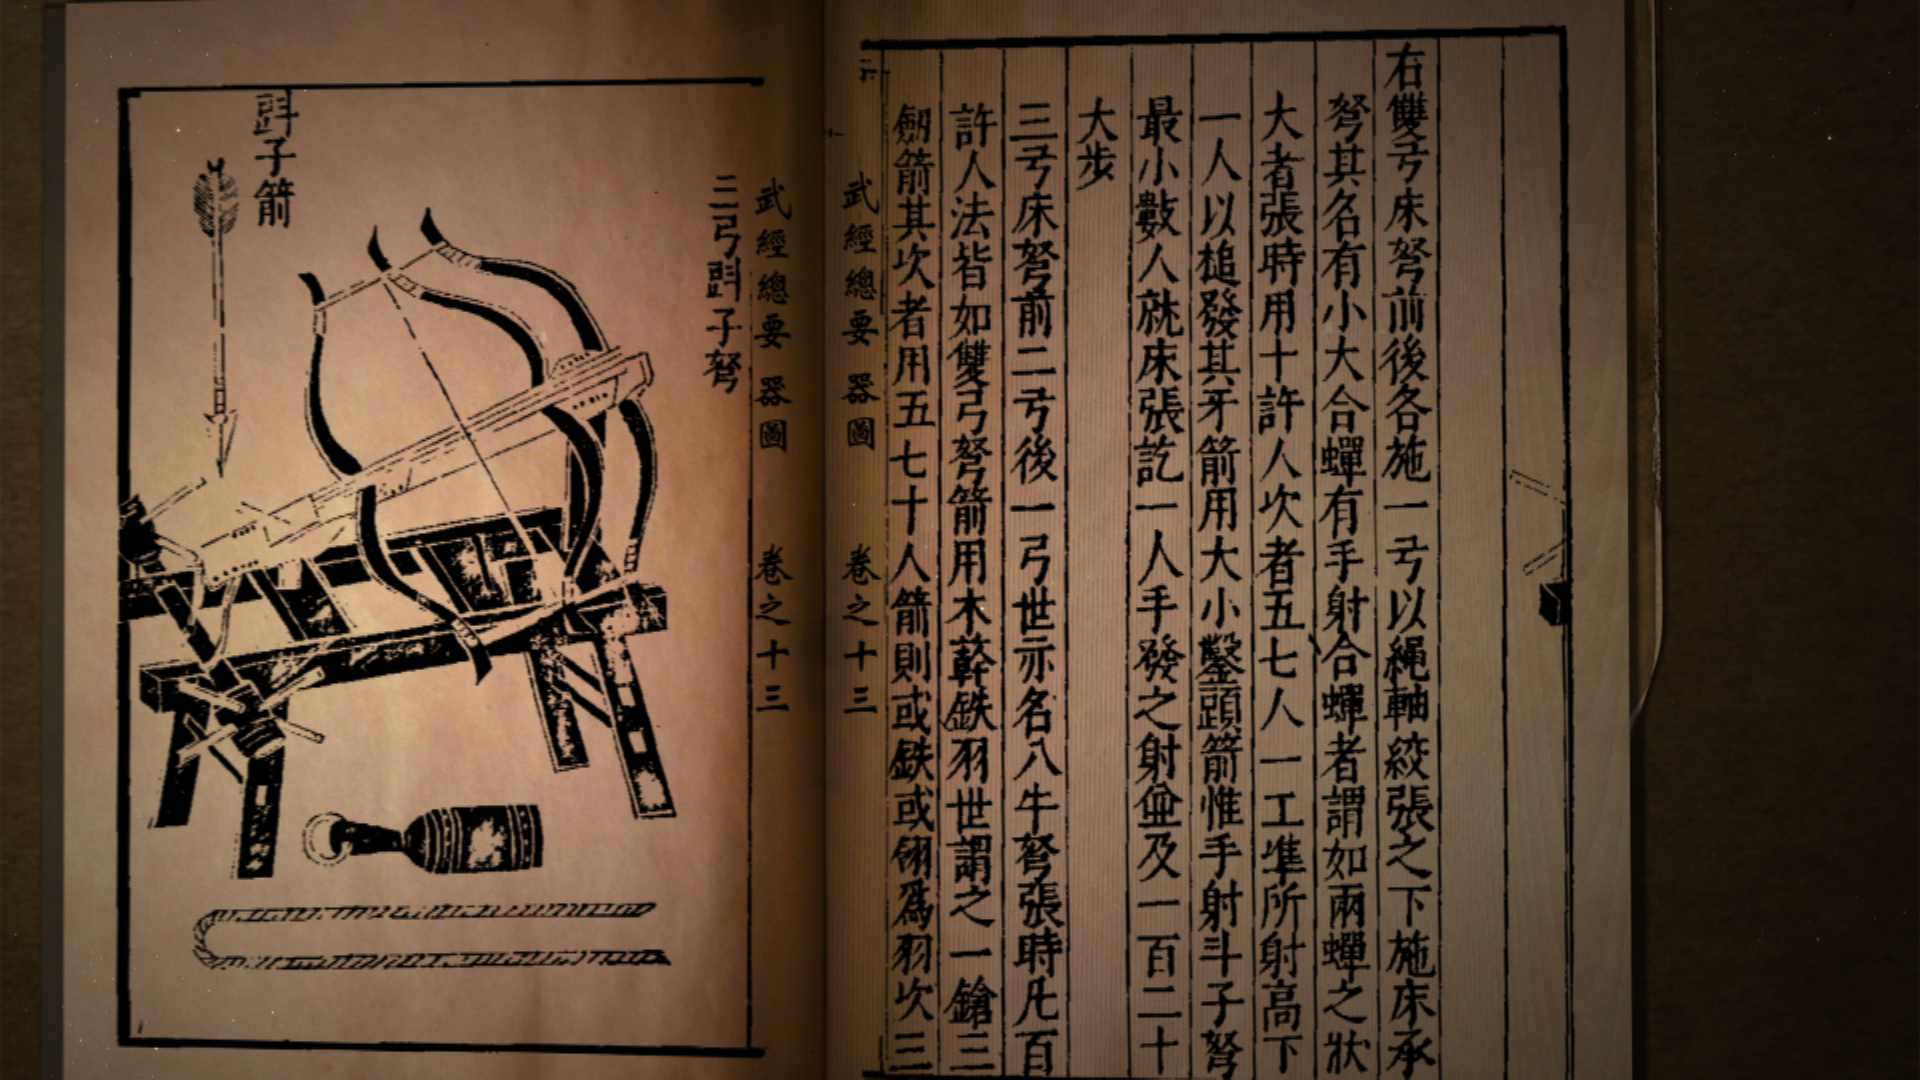 右雙弓床弩前後各施一弓以繩軸絞張之下施床承
弩其名有小大合蟬有手射合蟬者謂如兩蟬之狀
大者張時用十許人次者五七人一工準所射高下
一人以槌發其牙箭用大小鑿頭箭惟手射斗子弩
最小數人就床張訖一人手發之射並及一百二十
大步
三弓床弩前二弓後一弓世亦名八牛弩張時凡百
許人法皆如雙弓弩箭用木簳鉄羽世謂之一鎗三
劒箭其次者用五七十人箭則或鉄或翎爲羽次三
武經總要 器圖 卷之十三
武經總要 器圖 卷之十三
二弓㪷子弩
㪷子箭